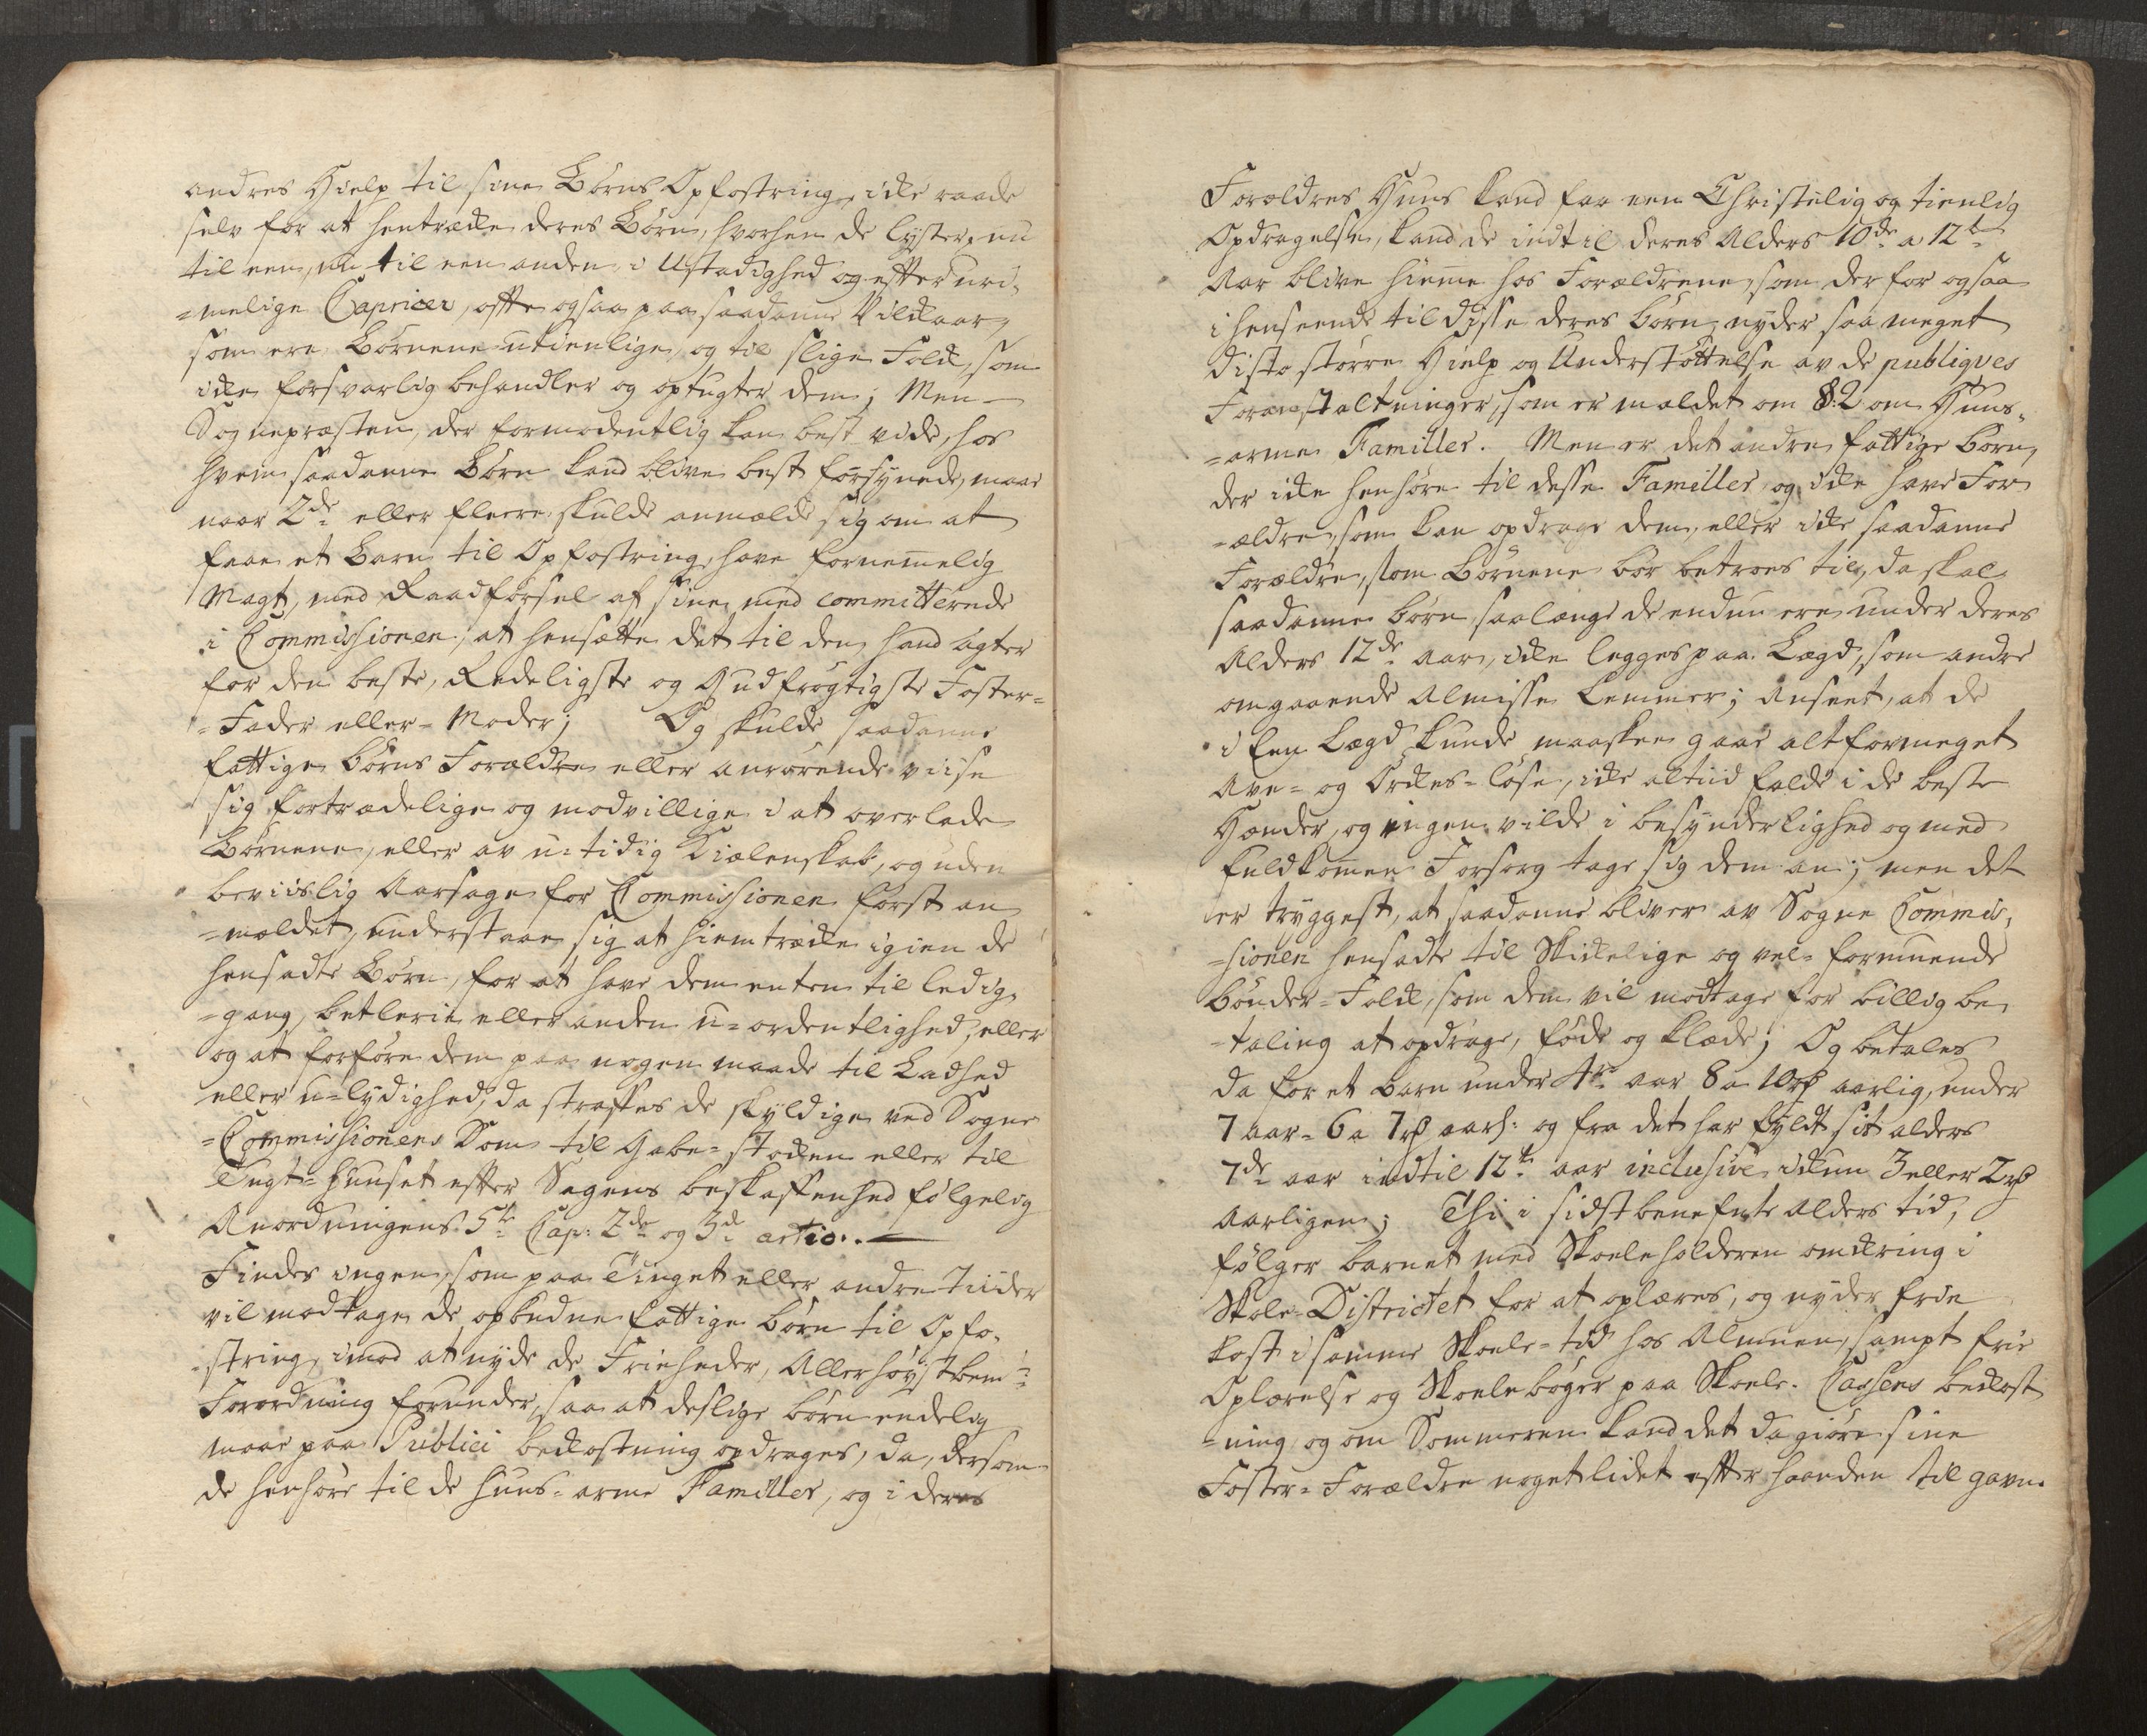 andres Hielp til sine Børns Opfostring, icke raade
selv for at hentrække deres Børn, hvorhen de lyster, nu
til een, nu til een anden i Ustadighed og efter uri-
=melige Capricer, ofte ogsaa paa saadanne Vilckaar,
som ere Børnene utienlige, og til slige Folck, som
icke forsvarlig behandler og optugter dem; Men
Sognepræsten, der formodentlig kan best vide, hos
hvem saadanne Børn kand blive best forsynede, maae
naar 2de eller fleere skulde anmelde sig om at
faae et Barn til Opfostring, have fornemmelig
Magt, med Raadførsel af sine med committerede
i Commissionen, at hensætte det til den, hand agter
for den beste, Redeligste og Gudfrygtigste Foster-
=Fader eller =Moder; Og skulde saadanne
fattige Børns Forældre eller anrørende viise
sig fortrædelige og modvillige i at overlade
Børnene, eller av u-tidig Kiælenskab, og uden
beviislig Aarsage for Commissionen først an
=meldet, understaae sig at hiemtrække igien de
hensadte Børn, for at have dem enten til ledig-
=gang, betlerie eller anden u-ordentlighed, eller
og at forføre dem paa nogen maade til Ladhed
eller u-lydighed, da straffes de skyldige ved Sogne
=Commissionens Dom til Gabe-stocken eller til
Tugt-huuset efter Sagens beskaffenhed følgelig
Anordningens 5te Cap: 2de og 3de artic. —
Findes ingen, som paa Tinget eller andre Tiider
vil modtage de opbudne fattige børn til Opfo-
=string, imod at nyde de Friheder, Allerhøystbem:te
Forordning forunder, saa at deslige børn endelig
maae paa Publici beckostning opdrages, da, dersom
de henhøre til de huus-arme Familler, og i deres
Forældres Huus kand faae een Christelig og tienlig
Opdragelse, kand de indtil deres Alders 10de a 12te
Aar blive hiemme hos Forældrene, som der for ogsaa
i henseende til disse deres børn, nyder saa meget
disto større Hielp og Understøttelse av de publiqves
Foranstaltninger, som er meldet om §: 2 om Huus-
=arme Familler. Men er det andre fattige børn,
der icke henhøre til desse Familler, og icke have For
=ældre, som kan opdrage dem, eller icke saadanne
Forældre, som Børnene bør betroes til, da skal
saadanne børn, saalænge de endnu ere under deres
Alders 12de Aar, icke legges paa Lægd, som andre
omgaaende Almisse Lemmer; Anseet, at de
i Een Lægd kunde maaskee gaae altformeget
Ave= og Orckes-løse, icke altiid falde i de beste
Hænder, og ingen vilde i besynderlighed og med
fuldkommen Forsorg tage sig dem an; men det
er tryggest, at saadanne bliver av Sogne Commis-
=sionen hensadte til Skickelige og vel-formuende
bønder-Folck, som dem vil modtage for billig be
=taling at opdrage, føde og klæde; Og betales
da for et Barn under 4re aar 8 a 10 rd aarlig, under
7 aar - 6 a 7 rd aarl: og fra det har fyldt sit alders
7de aar indtil 12te aar inclusive ickun 3 eller 2 rd
Aarligen; Thi i sidstbenefnte alders tid,
følger barnet med Skoeleholderen omckring i
Skole-Districtet for at oplæres, og nyder frie
kost i samme Skoele-tid hos Almuen, sampt frie
Oplærelse og Skoelebøger paa Skoele-Cassens beckost
=ning og om Sommeren kand det da giøre sine
Foster-Forældre noget lidet efter haanden til gavn.